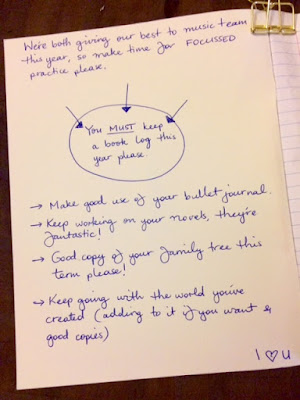 We're both giving our best to music team
this year, so make time for FOCUSSED
practice please.
You MUST keep
a book log this
year please.
→ Make good use of your bullet journal.
→ Keep working on your novels, they're
fantastic!
→ Good copy of your family tree this
term please!
→ Keep going with the world you've
created (adding to it if you want &
good copies)
I ♡ U